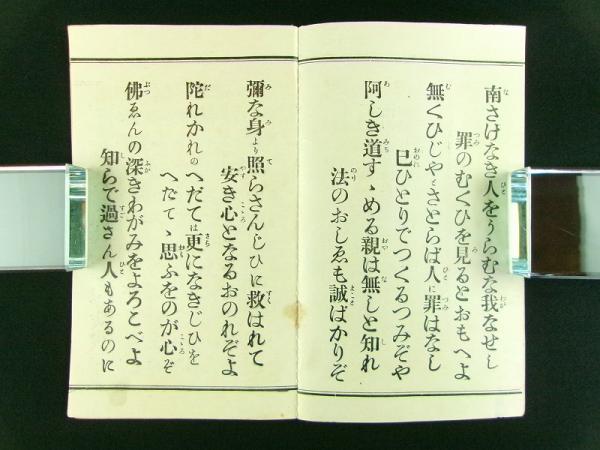 南さけなき人をうらむな我なせし
罪のむくひを見るとおもへよ
無くひじやとさとらば人に罪はなし
巳ひとりでつくるつみぞや
阿しき道すゝめる親は無しと知れ
法のおしゑも誠ばかりぞ
彌な身より照らさんじひに救はれて
安き心となるおのれぞよ
陀れかれのへだては更になきじひを
へだてゝ思ふをのが心ぞ
佛ゑんの深きわがみをよろこべよ
知らで過さん人もあるのに